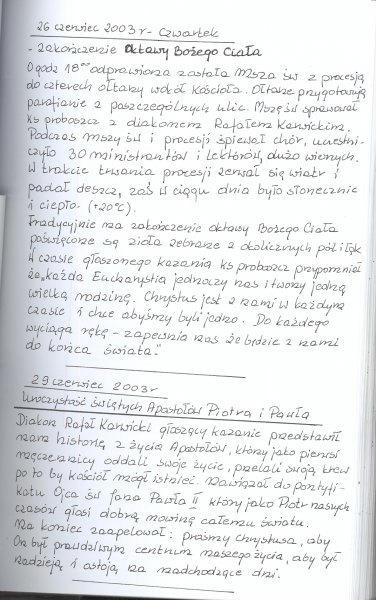 26 czerwiec 2003 r - Czwartek
- zakończenie Oktawy Bożego Ciała
O godz 18⁰⁰ odprawiona została Msza św z procesją
do czterech ołtarzy wokół Kościoła. Ołtarze przygotowują
parafianie z poszczególnych ulic. Mszę św sprawował
ks proboszcz z diakonem Rafałem Karwickim.
Podczas mszy św i procesji śpiewał chór, uczestni-
czyło 30 ministrantów i lektorów, dużo wiernych.
W trakcie trwania procesji zerwał się wiatr i
padał deszcz, zaś w ciągu dnia było słonecznie
i ciepło (+20°C).
Tradycyjnie na zakończenie oktawy Bożego Ciała
poświęcone są zioła zebrane z okolicznych pól i łąk
W czasie głoszonego kazania ks proboszcz przypomniał
że „każda Eucharystia jednoczy nas i tworzy jedną
wielką rodzinę. Chrystus jest z nami w każdym
czasie i chce abyśmy byli jedno. Do każdego
wyciąga rękę - zapewnia nas że będzie z nami
do końca świata."
29 czerwiec 2003 r
Uroczystość Świętych Apostołów Piotra i Pawła
Diakon Rafał Karwicki głoszący kazanie przedstawił
nam historię z życia Apostołów, którzy jako pierwsi
męczennicy oddali swoje życie, przelali swoją krew
po to by kościół mógł istnieć. Nawiązał do pontyfi-
katu Ojca św Jana Pawła II który jako Piotr naszych
czasów głosi dobrą nowinę całemu światu.
Na koniec zaapelował: prośmy Chrystusa, aby
On był prawdziwym centrum naszego życia, aby był
nadzieją i ostoją na nadchodzące dni.